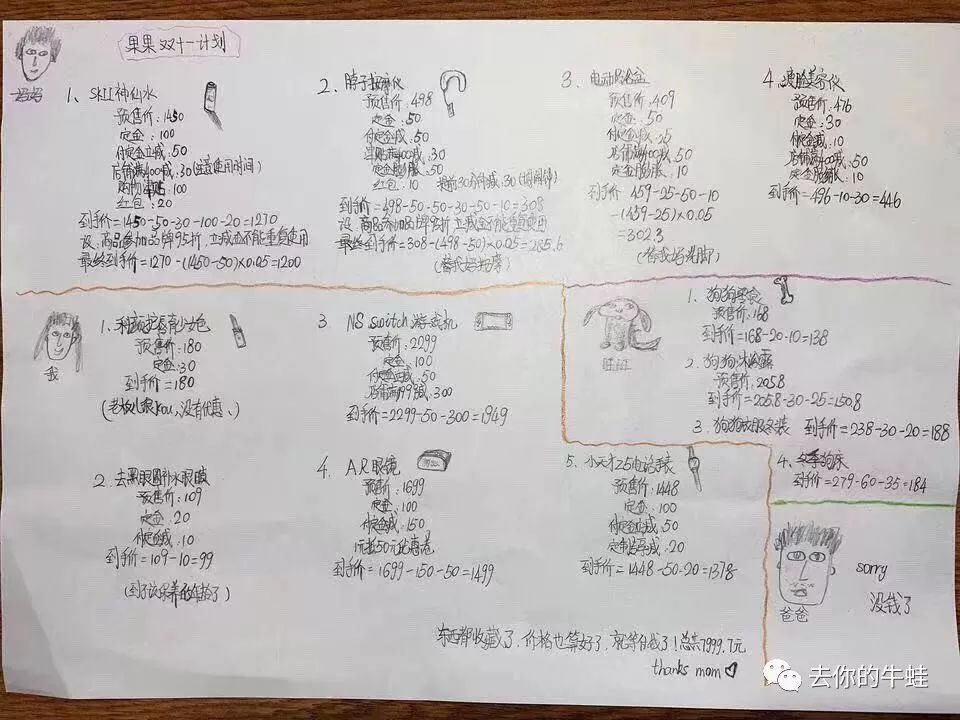 果果双十一计划
妈妈
1、SKII神仙水
预售价：1450
定金：100
付定立减：50
店铺满400减：30（注意使用时间）
购物津贴：100
红包：20
到手价=1450-50-30-100-20=1270
设：商品参加品牌95折，立减也不能重复使用
最终到手价=1270-(1450-50)×0.05=1200
2、脖子按摩仪
预售价：498
定金：50
付定金减：50
满400减：30
定金膨胀：50
红包：10
前30分钟减：30
到手价=498-50-50-30-50-10=308
设：商品参加品牌95折，立减也不能重复使用
最终到手价=308-(498-50)×0.05=285.6
（替我妈按摩）
3、电动
预售价：409
定金：50
付定金减：25
店铺满400减：50
定金膨胀：10
到手价 459-25-50-10
-(459-25)×0.05
=302.3
（替我妈洗脚）
4、瘦脸美容仪
预售价：476
定金：30
付定金减：10
店铺满400减：50
定金：10
到手价=496-10-30=446
我
1、
预售价：180
定金：30
到手价=180
（you，没有优惠、）
2、去黑眼圈补水眼膜
预售价：109
定金：20
付定金减：10
到手价=109-10=99
（到了该保养的年龄了）
3 NS switch游戏机
预售价：2299
定金：100
付定立减：50
店铺满199减：300
到手价=2299-50-300=1949
4、AR眼镜
预售价：1699
定金：100
付定金减：150
1元抵50元优惠卷
到手价=1699-150-50=1499
5、小天才Z5电话手表
预售价：1448
定金：100
付定立减：50
减：20
到手价=1448-50-20=1378
旺旺
1、狗狗零食
预售价：168
到手价=168-20-10=138
2、狗狗沐浴露
预售价：205.8
到手价=205.8-30-25=150.8
3、狗狗衣服冬装 到手价=238-30-20=188
4、冬季狗床
到手价=279-60-35=184
爸爸
sorry
没钱了
东西都收藏了，价格也算好了，就等你钱了！总共7999.7元
thanks mom
去你的牛蛙